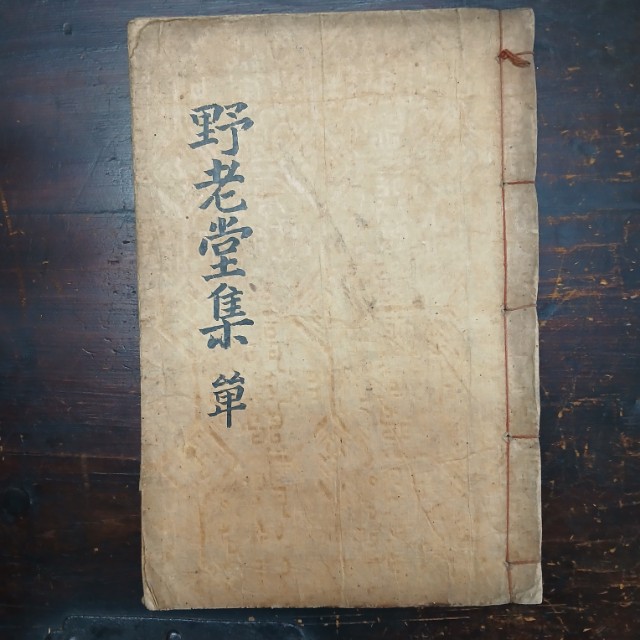 野老堂集 單